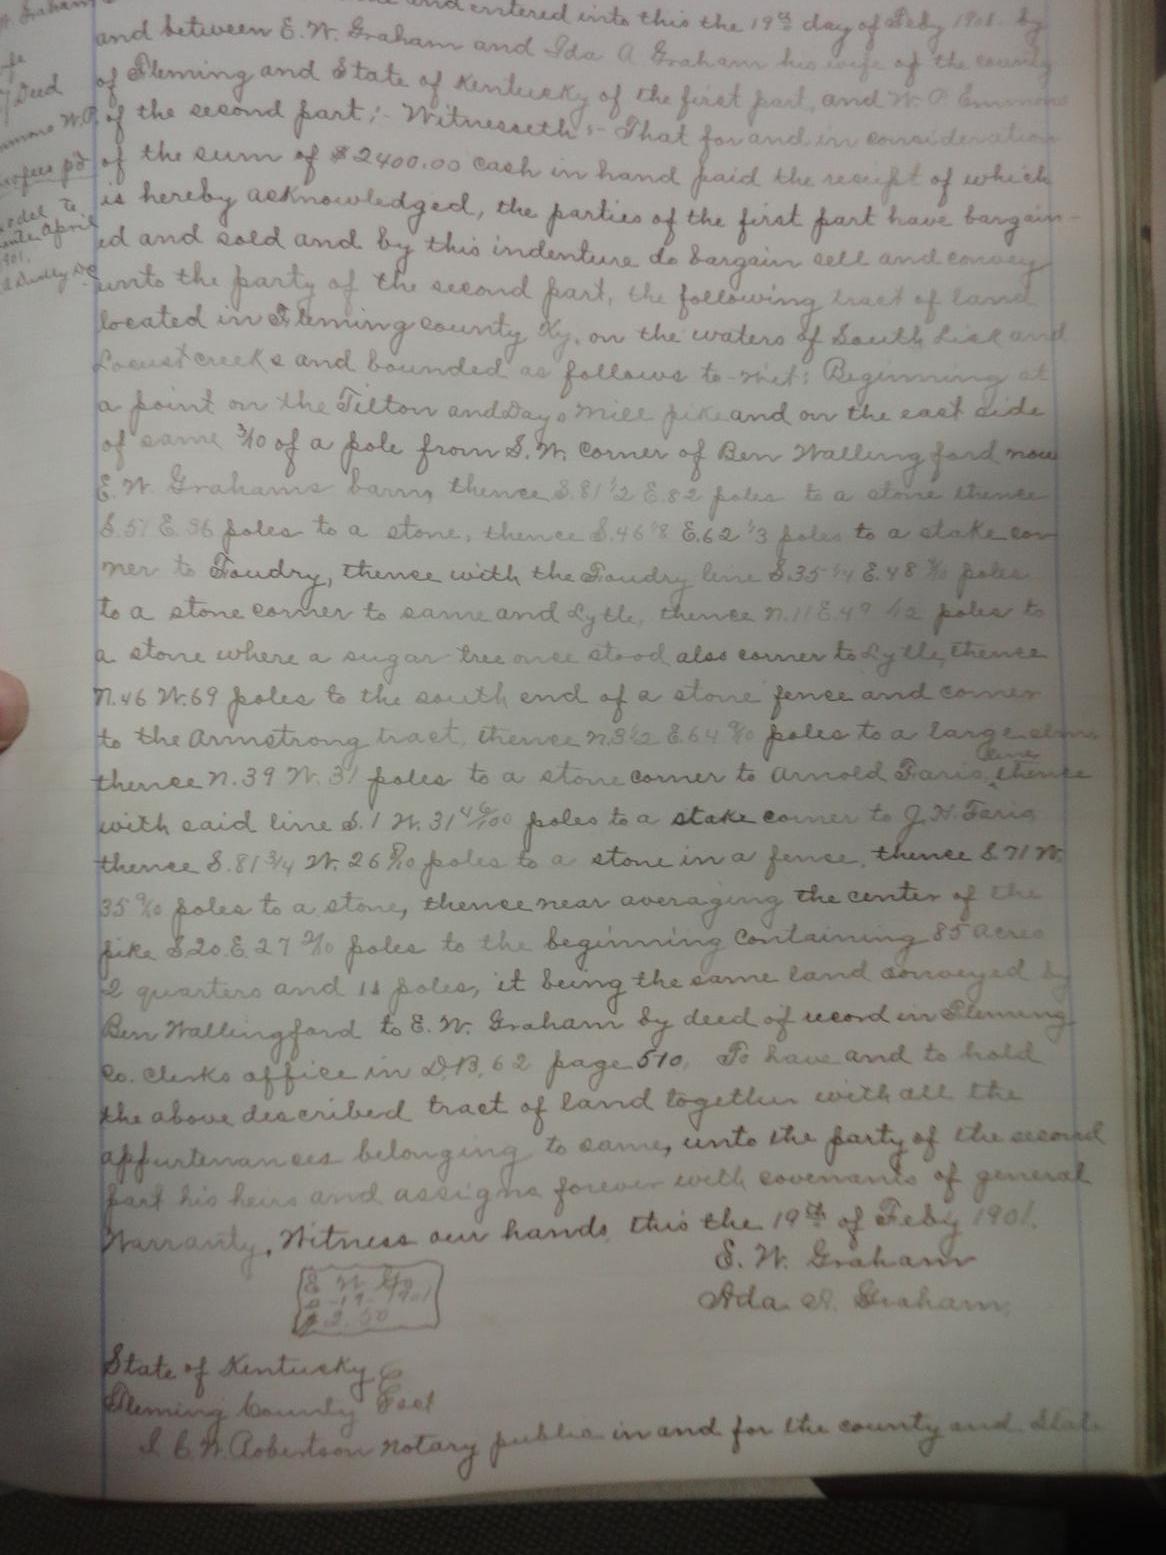 and entered into this the 19th day of Feby 1901. by
and between E. W. Graham and Ida A Graham his wife of the county
of Fleming and State of Kentucky of the first part, and W. P. Emmons
of the second part;- Witnesseth:- That for and in consideration
of the sum of $2400.00 cash in hand paid the receipt of which
is hereby acknowledged, the parties of the first part have bargain-
ed and sold and by this indenture do bargain sell and convey
unto the party of the second part, the following tract of land
located in Fleming county Ky, on the waters of South Lick and
Locust creeks and bounded as follows to-wit: Beginning at
a point on the Tilton and Days Mill pike and on the east side
of same 3/10 of a pole from S.W. corner of Ben Wallingford now
E. W. Grahams barn, thence S.81 1/2 E.82 poles to a stone thence
S.51 E.36 poles to a stone, thence S.46 1/8 E.62 1/3 poles to a stake cor
ner to Foudry, thence with the Foudry line S.35 1/4 E.48 poles
to a stone corner to same and Lytle, thence N.11 E.49 1/2 poles to
a stone where a sugar tree once stood also corner to Lytle, thence
N.46 W.69 poles to the south end of a stone fence and corner
to the Armstrong tract, thence N.3 1/2 E.64 poles to a large elm,
thence N.39 W.31 poles to a stone corner to Arnold Faris line thence
with said line S.1 W.31 46/100 poles to a stake corner to J. H. Faris
thence S.81 3/4 W.26 poles to a stone in a fence, thence S.71 W.
35 poles to a stone, thence near averaging the center of the
pike S20.E.27 poles to the beginning containing 85 acres
2 quarters and 11 poles, it being the same land conveyed by
Ben Wallingford to E. W. Graham by deed of record in Fleming
Co. Clerks office in D.B. 62 page 510. To have and to hold
the above described tract of land together with all the
appurtenances belonging to same, unto the party of the second
part his heirs and assigns forever with covenants of general
Warranty, Witness our hands this the 19th of Feby 1901.
E. W. Graham
Ada A. Graham
State of Kentucky
Fleming County Sct
I C. W. Robertson notary public in and for the county and State